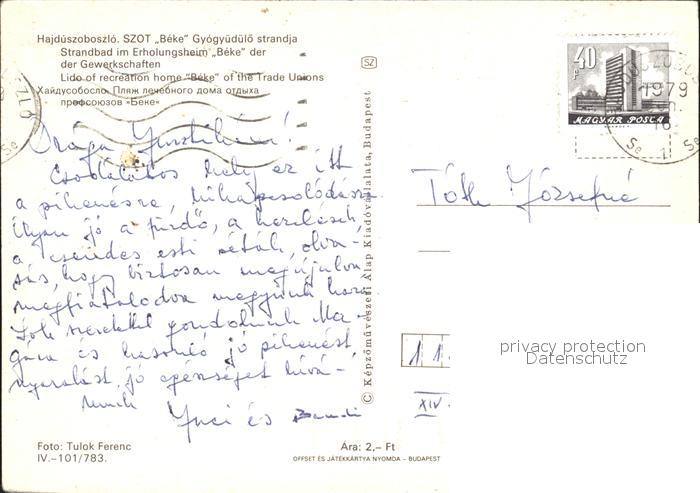 Hajdúszoboszló. SZOT „Béke” Gyógyüdülő strandja
Strandbad im Erholungsheim „Béke” der
der Gewerkschaften
Lido of recreation home "Béke" of the Trade Unions
Хайдусобосло. Пляж лечебного дома отдыха
профсоюзов «Беке»
Drága Jusztikám!
Csodálatos hely ez itt
a pihenésre, kikapcsolódásra.
Olyan jó a fürdő, a kezelések,
a csendes esti séták, olva-
sás, hogy biztosan megújulva
megfiatalodva megyünk haza.
Sok szeretettel gondolunk Ma-
gára és hasonló jó pihenést
nyaralást, jó egészséget kívá-
nunk
Juci és Bandi
Foto: Tulok Ferenc
IV.–101/783.
Ára: 2,– Ft
OFFSET ÉS JÁTÉKKÁRTYA NYOMDA – BUDAPEST
SZ
© Képzőművészeti Alap Kiadóvállalata, Budapest
40 f
MAGYAR POSTA
1979
16
Tóth Józsefné
1 1
XIV.
privacy protection
Datenschutz